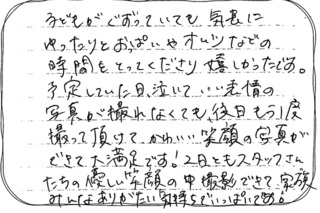 子どもがぐずっていても、気長に
ゆったりとおっぱいやオムツなどの
時間をとってくださり嬉しかったです。
予定していた日、泣いていい表情の
写真が撮れなくても、後日もう1度
撮って頂けて、かわいい笑顔の写真が
できて大満足です！2日ともスタッフさん
たちの優しい笑顔の中撮影できて、家族
みんなありがたい気持ちでいっぱいです。